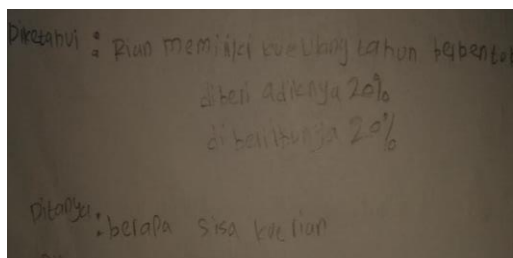 Diketahui : Rian memiliki kue ulang tahun berbentu
diberi adiknya 20%
diberi ibunya 20%
Ditanya : berapa sisa kue rian